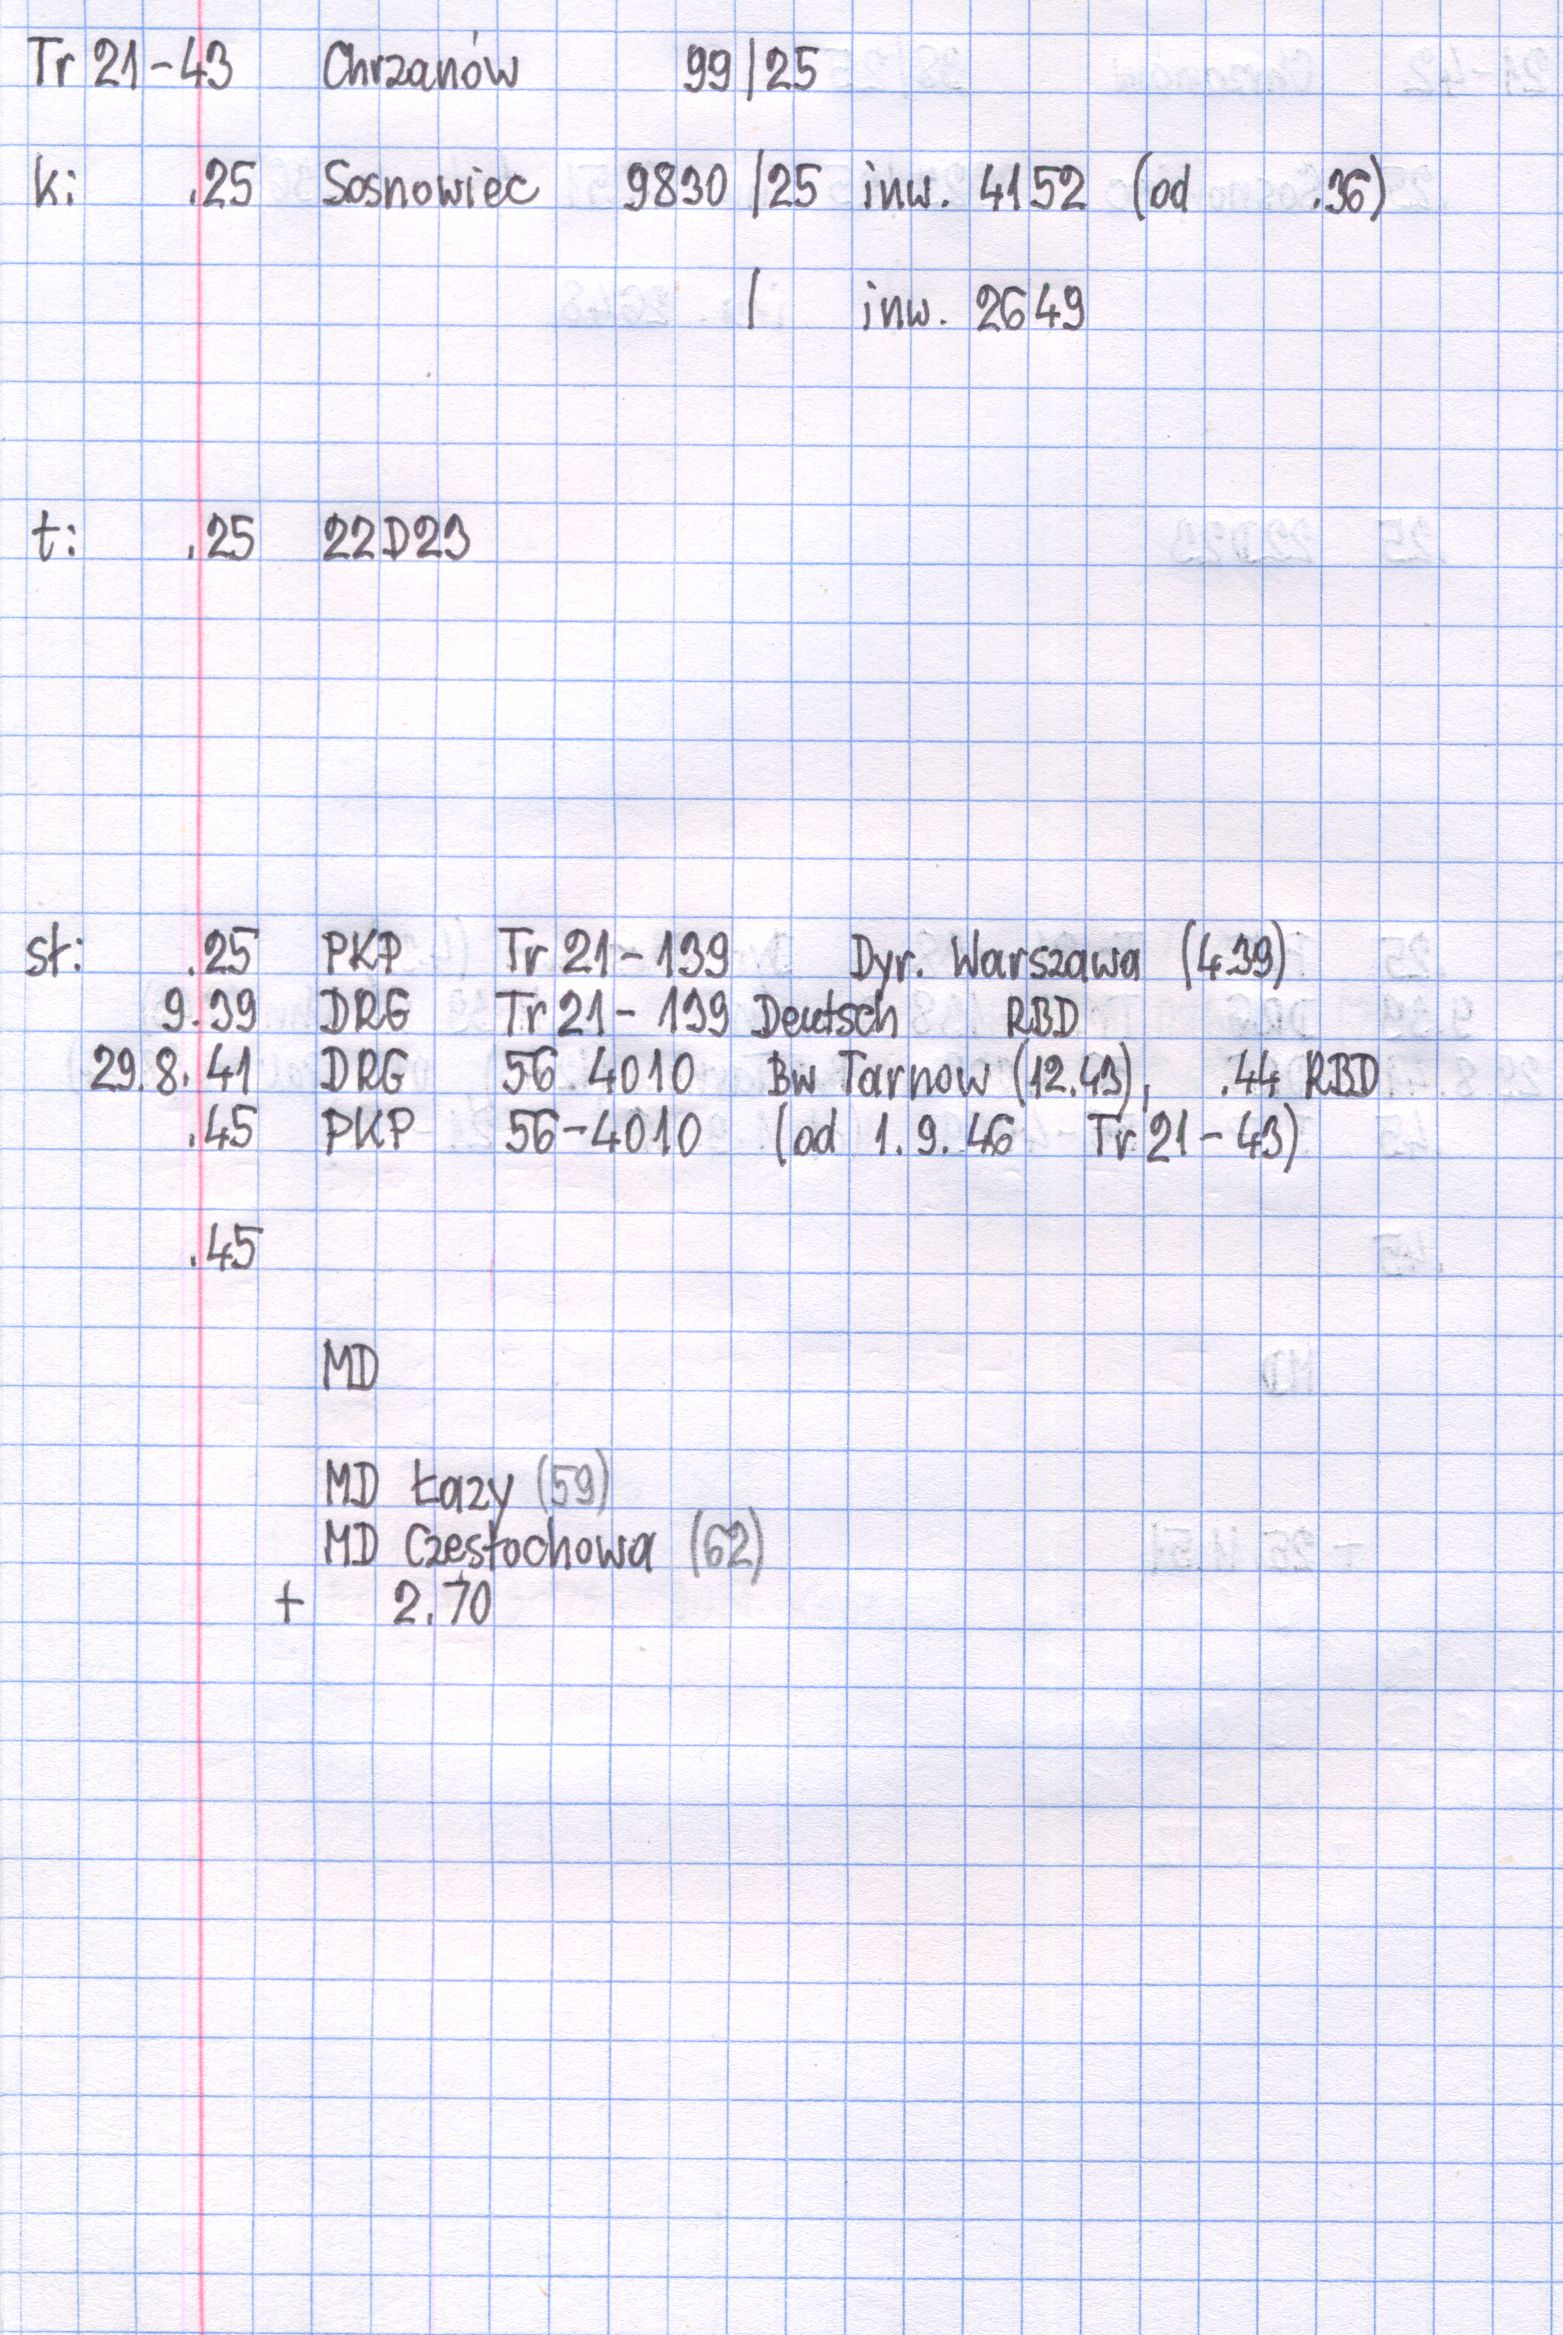 Tr 21-43 Chrzanów 99/25
k: .25 Sosnowiec 9830/25 inw. 4152 (od .36)
/ inw. 2649
t: .25 22D23
sł: .25 PKP Tr 21-139 Dyr. Warszawa (4.39)
9.39 DRG Tr 21-139 Deutsch RBD
29.8.41 DRG 56.4010 Bw Tarnow (12.43), .44 RBD
.45 PKP 56-4010 (od 1.9.46 Tr 21-43)
.45
MD
MD Łazy (59)
MD Częstochowa (62)
+ 2.70